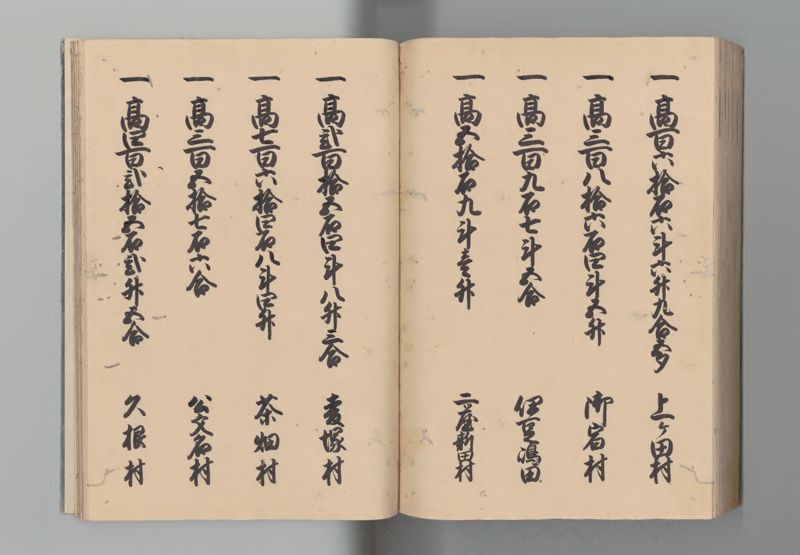 一 高百六拾石六斗六升九合五夕 上ヶ田村
一 高三百八拾六石四斗五升 御宿村
一 高三百九石七斗五合 伊豆嶋田
一 高五拾石九斗壱升 二ツ屋新田村
一 高弐百拾五石四斗八升三合 麦塚村
一 高七百六拾四石八斗四升 茶畑村
一 高三百五拾七石六合 公文名村
一 高四百弐拾五石弐升五合 久根村